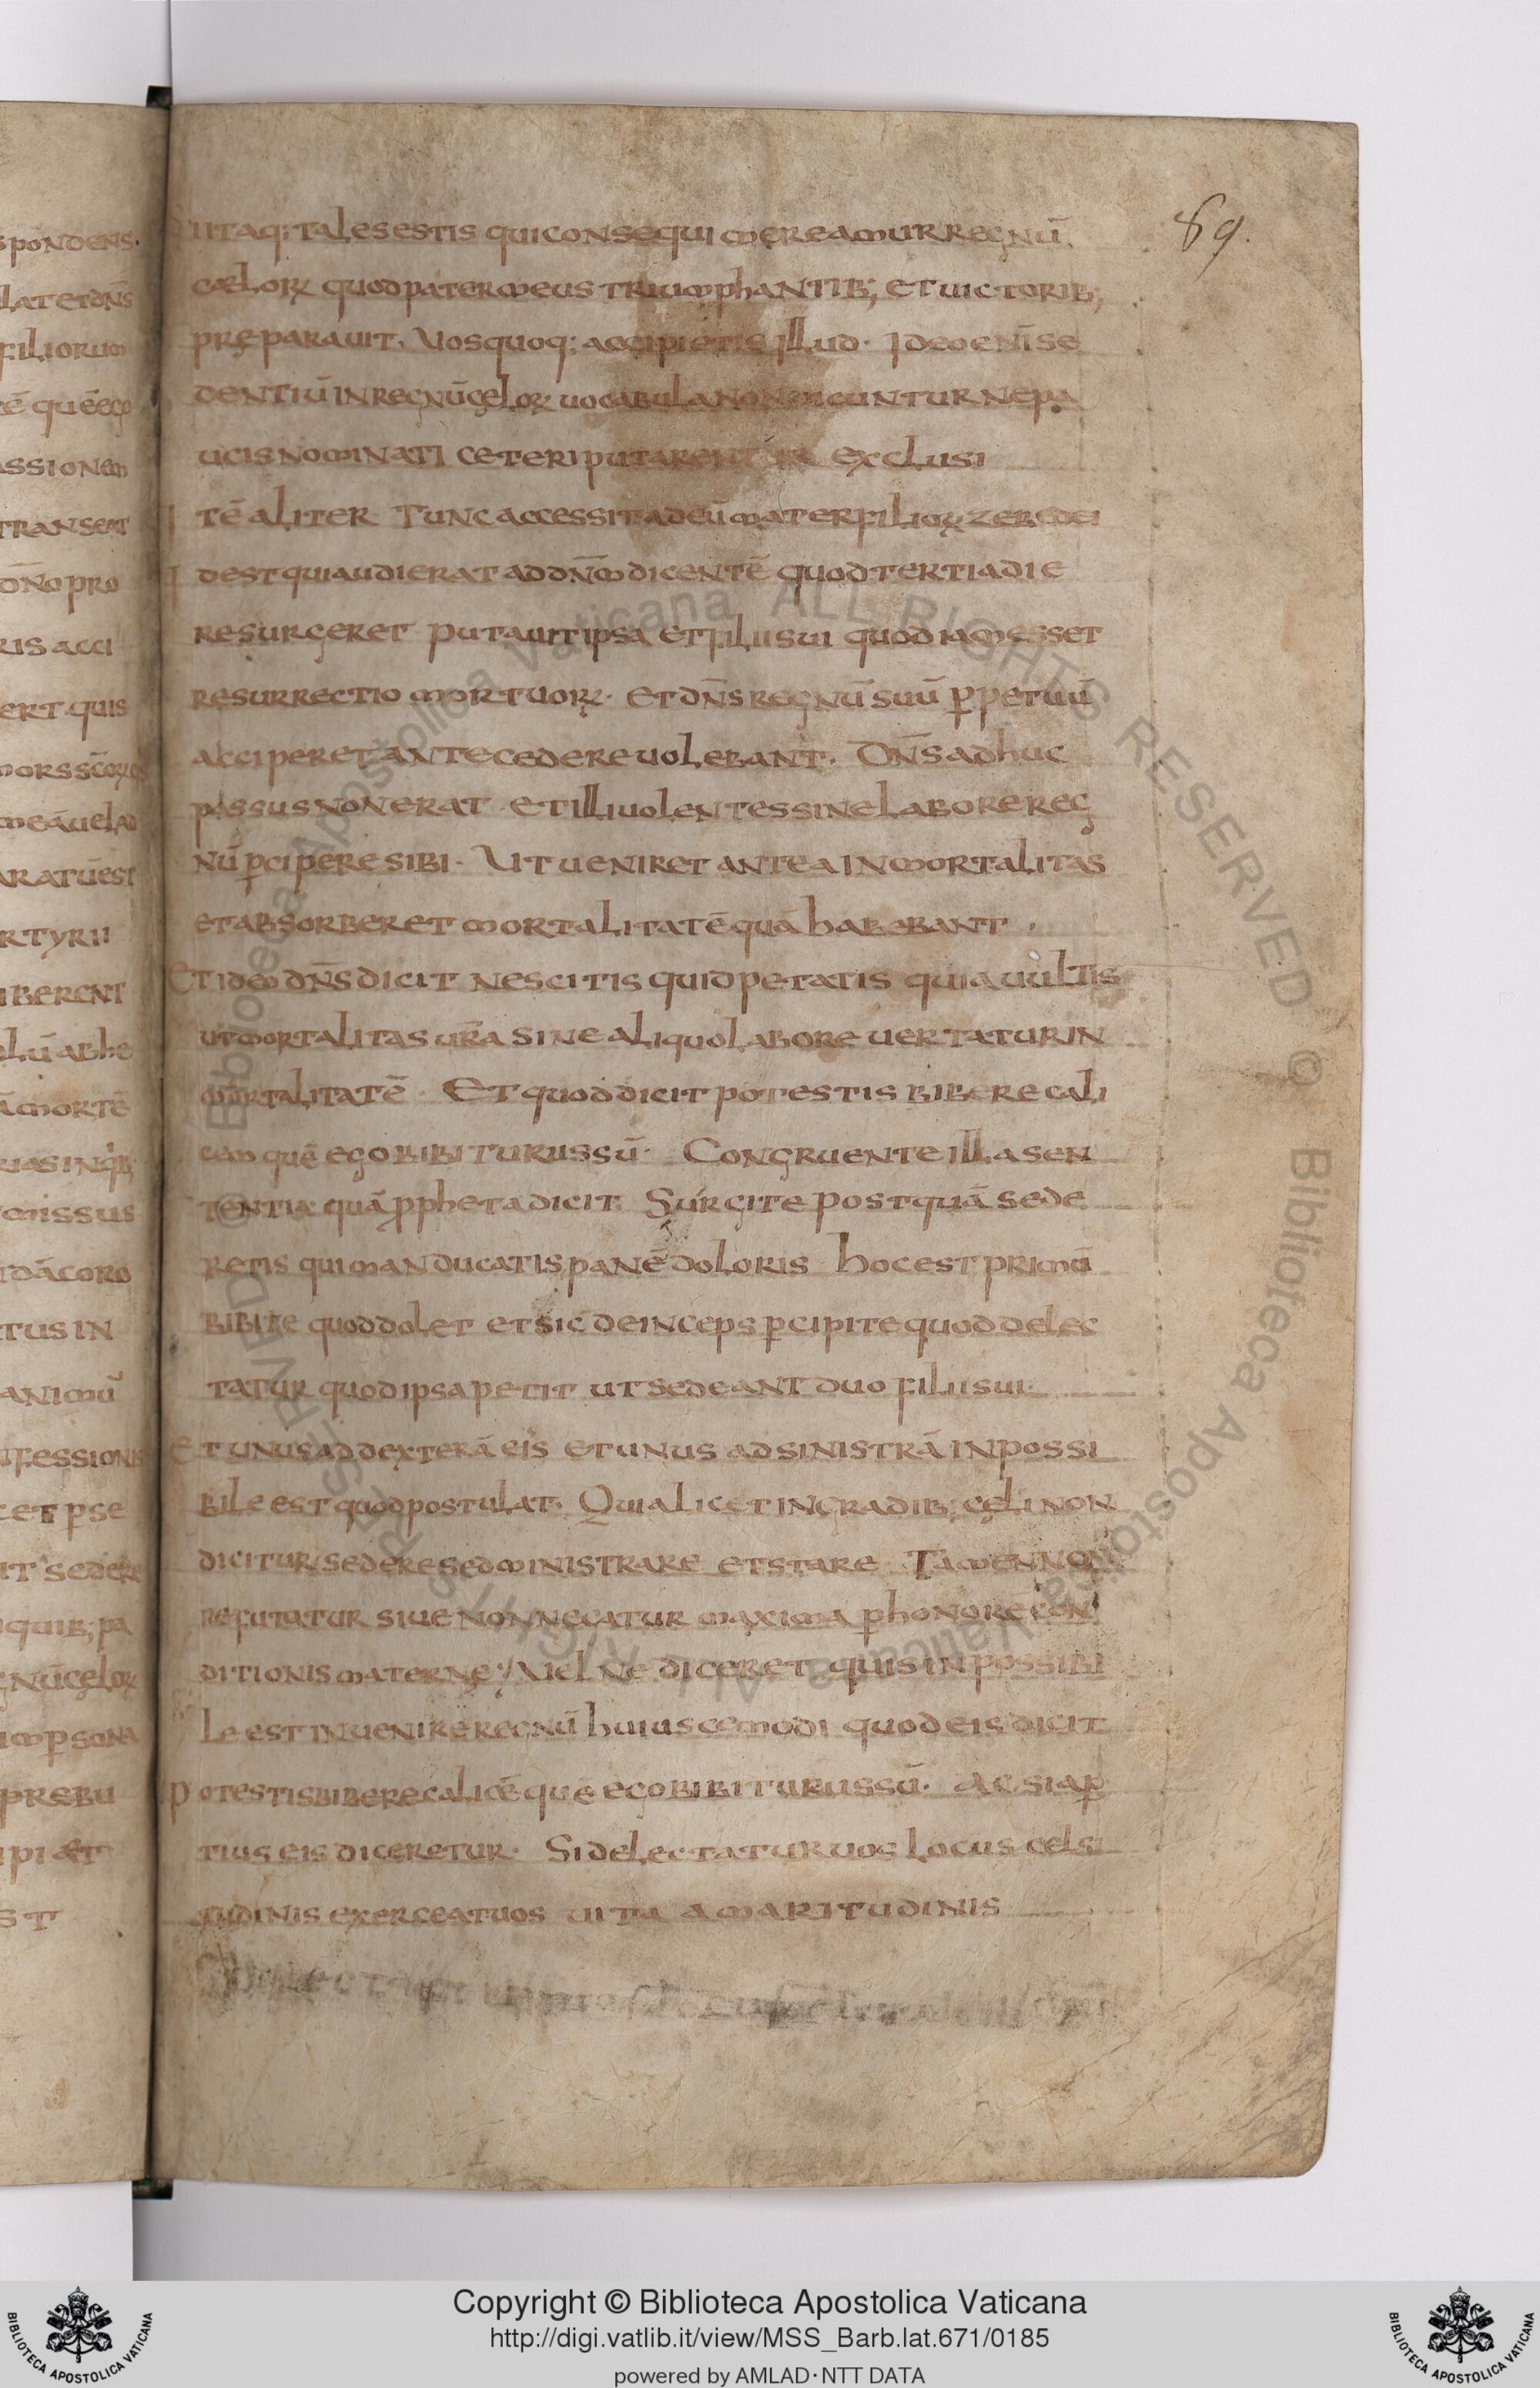 spondens.
lat et dn̄s
filiorum
tē quē ego
assionem
transeat
dn̄o pro
ris acci
ert quis
mors sc̄orꝝ
meā uel ad
aratū est
rtyrii
iberent
lū ab he
ā mortē
uias in qꝰb;
missus
dā coro
tus in
animū
fessionis
et ꝑ se
it sedere
quib; pa
gnū cęlorꝝ
im ꝑsona
prebu
ipi æt
st
89.
Si itaq; tales estis qui consequi mereamur regnū
cælorꝝ quod pater meus triumphantib; et uictorib;
pręparauit. Uos quoq; accipietis illud. Ideo eni se
dentiū in regnū cęlorꝝ uocabula non dicuntur ne pa
ucis nominati ceteri putarentur exclusi
Itē aliter Tunc accessit ad eū mater filiorꝝ zebedei
Id est qui audierat ad dn̄m dicentē quod tertia die
resurgeret putauit ipsa et filii sui quod iam esset
resurrectio mortuorꝝ. et dn̄s regnū suū ꝑpetuū
acciperet antecedere uolebant. Dn̄s adhuc
passus non erat et illi uolentes sine labore reg
nū ꝑcipere sibi. Ut ueniret antea inmortalitas
et absorberet mortalitatē quā habebant.
Et idem dn̄s dicit nescitis quid petatis quia uultis
ut mortalitas ur̄a sine aliquo labore uertatur in
mortalitatē. Et quod dicit potestis bibere cali
cem quē ego bibiturus sū. Congruente illa sen
tentia quā ꝓpheta dicit. Surgite postquā sede
retis qui manducatis panē doloris hoc est primū
bibite quod dolet et sic deinceps ꝑcipite quod delec
tatur quod ipsa petit ut sedeant duo filii sui.
Et unus ad dexterā eis et unus ad sinistrā inpossi
bile est quod postulat. Quia licet in gradib; cęli non
dicitur sedere sed ministrare et stare Tamen non
refutatur siue non negatur maxima ꝑ honorē con
ditionis materne; Uel ne diceret quis inpossibi
le est inuenire regnū huiuscemodi quod eis dicit
potestis bibere calicē quē ego bibiturus sū. Ac si aꝑ
tius eis diceretur. Si delectatur uos locus celsi
tudinis exerceat uos uita amaritudinis
Copyright © Biblioteca Apostolica Vaticana
http://digi.vatlib.it/view/MSS_Barb.lat.671/0185
powered by AMLAD·NTT DATA
BIBLIOTECA APOSTOLICA VATICANA
BIBLIOTECA APOSTOLICA VATICANA
Biblioteca Apostolica Vaticana ALL RIGHTS RESERVED © Biblioteca Apostolica Vaticana ALL RIGHTS RESERVED ©